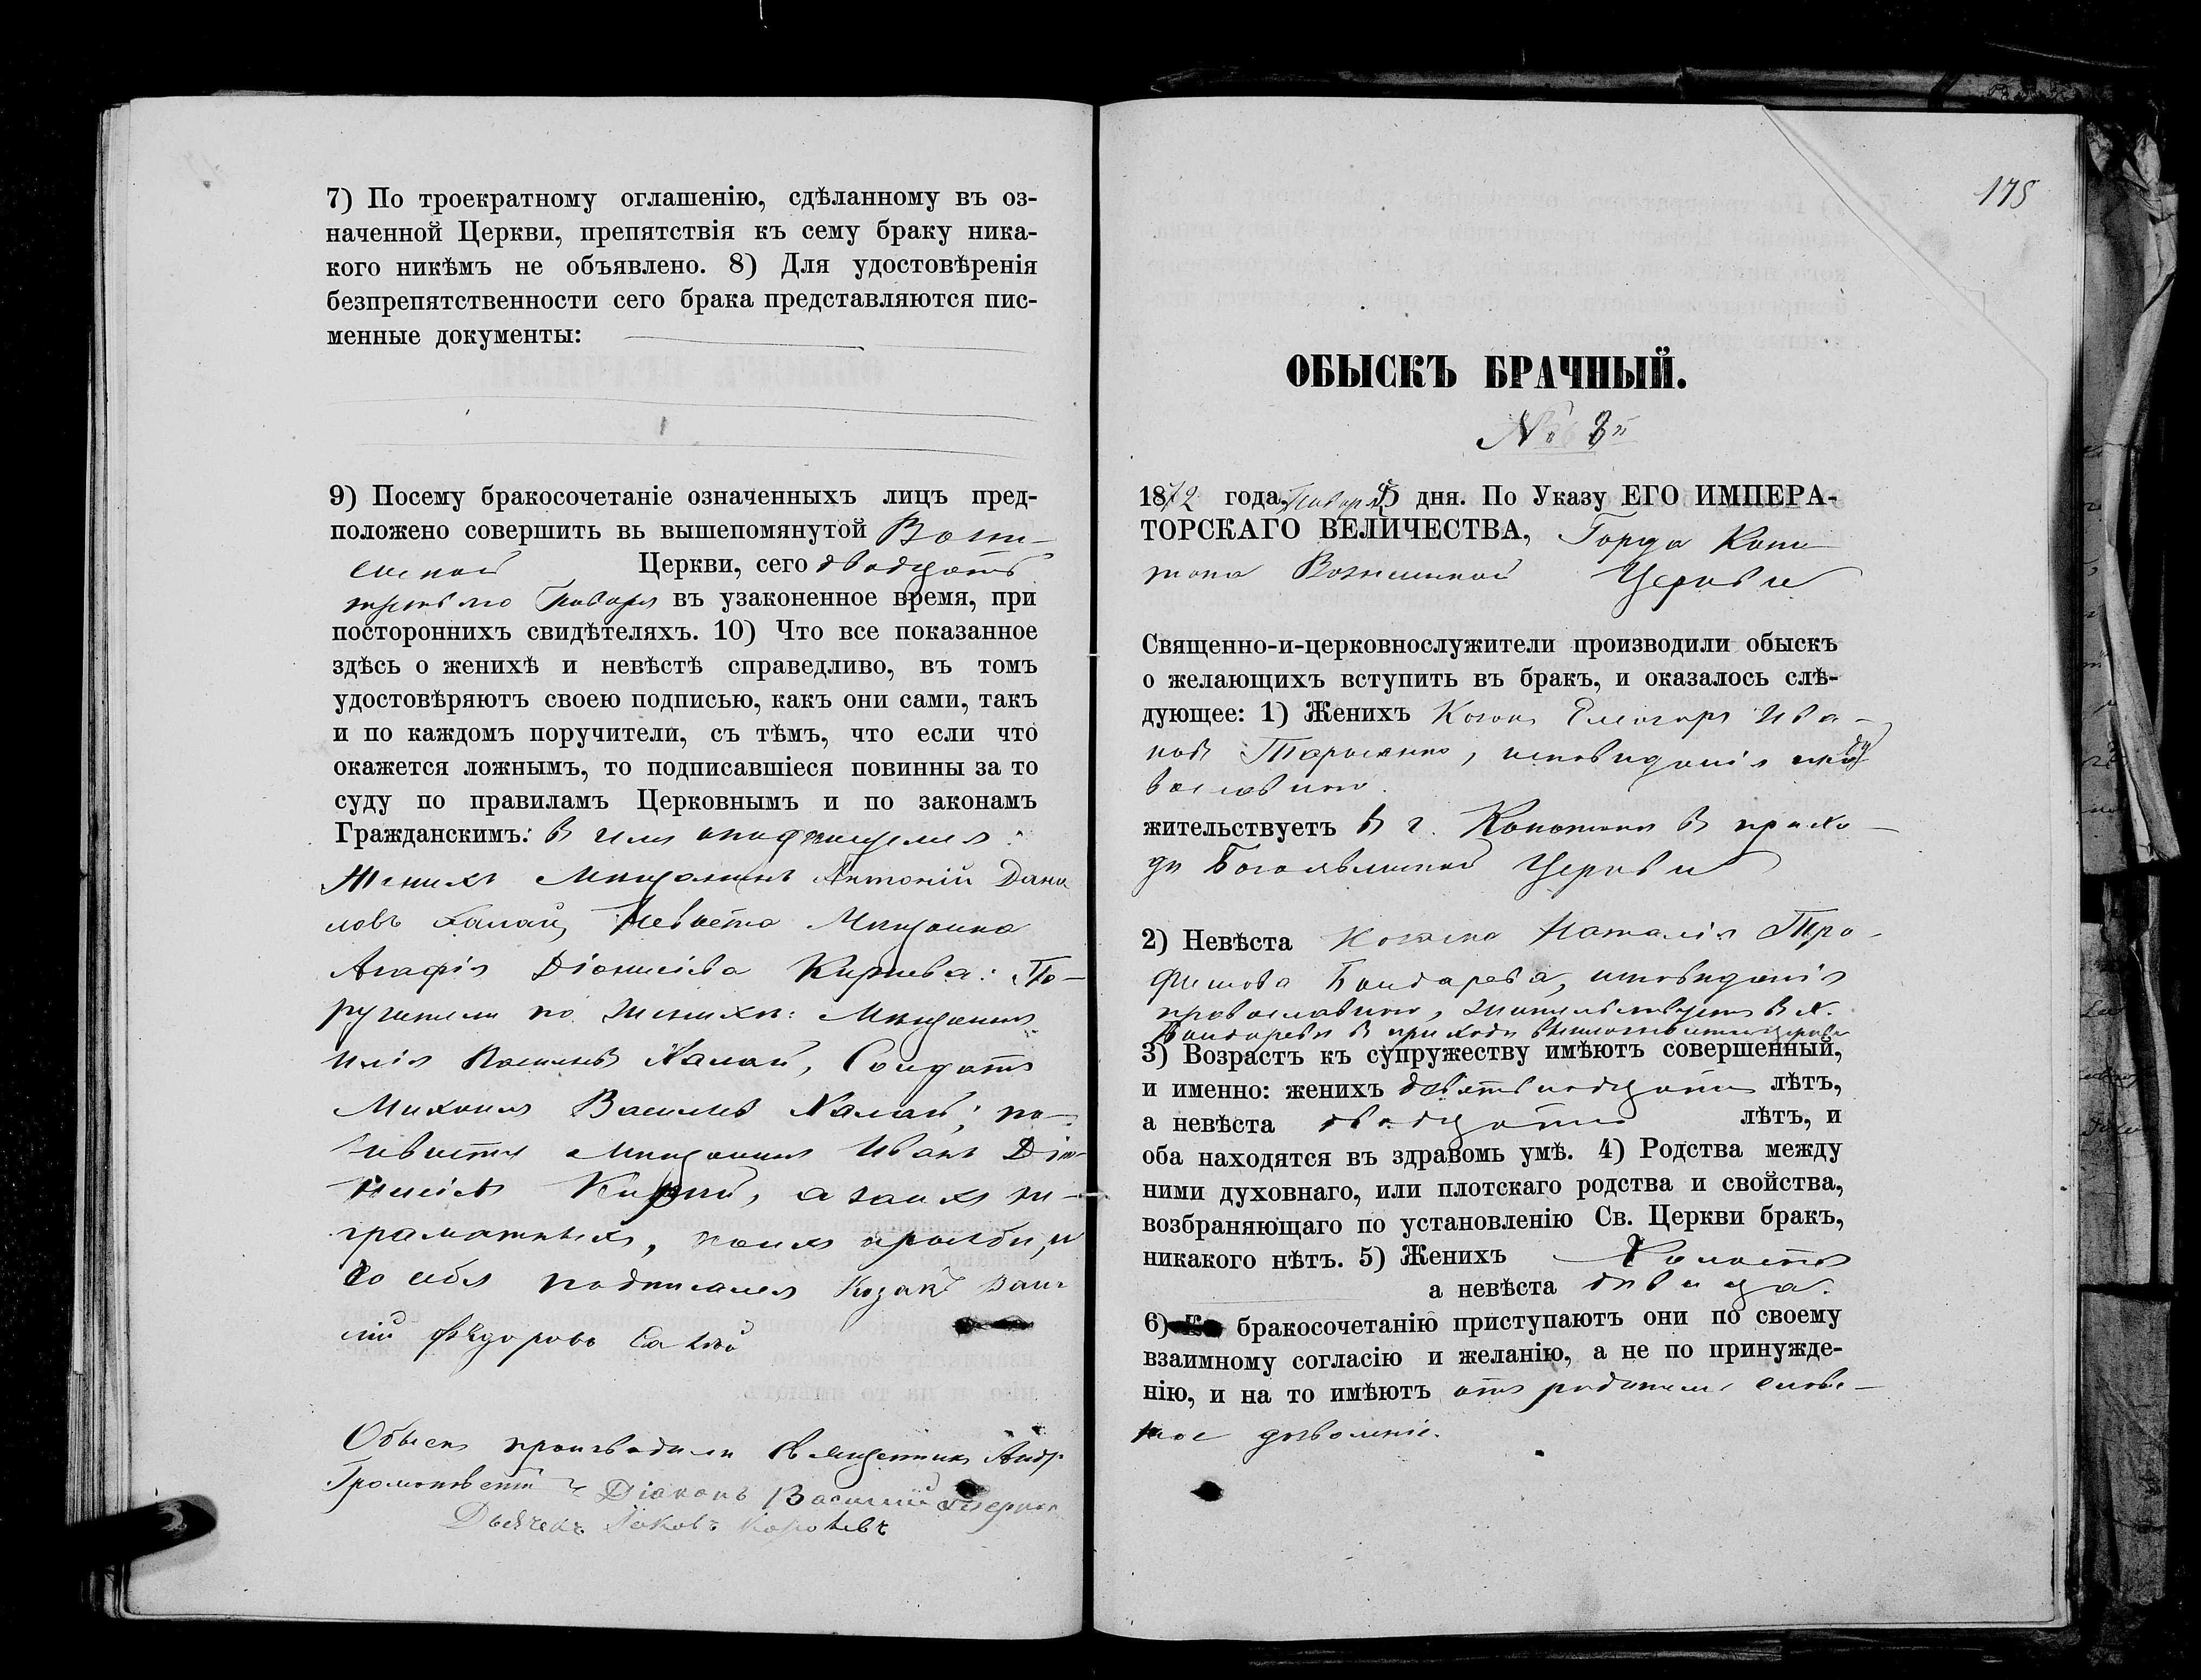 7) По троекратному оглашенію, сдѣланному въ оз-
наченной Церкви, препятствія къ сему браку ника-
кого никѣмъ не объявлено. 8) Для удостовѣренія
безпрепятственности сего брака представляются пис-
менные документы:
9) Посему бракосочетаніе означенныхъ лицъ пред-
положено совершить вь вышепомянутой Возне-
сенской Церкви, сего двадцать
третьяго Января въ узаконенное время, при
постороннихъ свидѣтеляхъ. 10) Что все показанное
здѣсь о женихѣ и невѣстѣ справедливо, въ томъ
удостовѣряютъ своею подписью, какъ они сами, такъ
и по каждомъ поручители, съ тѣмъ, что если что
окажется ложнымъ, то подписавшіеся повинны за то
суду по правиламъ Церковнымъ и по законамъ
Гражданскимъ: в чем и подписуемся:
Женихъ Мѣщанинъ Антоній Дани
ловъ Халай, Невѣста Мѣщанка
Агафія Діонисіева Кирѣева: По-
ручители по женихѣ: Мѣщанинъ
Илія Васильевъ Халай, Солдатъ
Михаилъ Васильевъ Халай; по
невѣстѣ Мѣщанинъ Иванъ Діо-
нисіевъ Кирѣй, а за ихъ не-
граматныхъ, по ихъ прозьбѣ, и
за себя подписался Козакъ Васи
лій Фѣдоровъ
Обыскъ производили Священникъ Андр.
Діаконъ Василій
Дьячекъ Іаковъ
175
ОБЫСКЪ БРАЧНЫЙ.
№ 8й
1872 года, Января 5 дня. По Указу ЕГО ИМПЕРА-
ТОРСКАГО ВЕЛИЧЕСТВА, Города Коно-
топа Вознесенской Церкви
Священно-и-церковнослужители производили обыскъ
о желающихъ вступить въ бракъ, и оказалось слѣ-
дующее: 1) Женихъ Козакъ Елеазаръ Ива-
новъ Тарасенко, исповѣданія пра
вославнаго.
жительствуетъ въ г. Конотопѣ въ прихо-
дѣ Богоявленской Церкви
2) Невѣста Козачка Наталія Тро-
фимова Бондарева, исповѣданія
православнаго, жительствуетъ въ х.
Бондаревѣ въ приходѣ вышеозначенной церкви
3) Возрастъ къ супружеству имѣютъ совершенный,
и именно: женихъ девятьнадцать лѣтъ,
а невѣста двадцать лѣтъ, и
оба находятся въ здравомь умѣ. 4) Родства между
ними духовнаго, или плотскаго родства и свойства,
возбраняющаго по установленію Св. Церкви бракъ,
никакого нѣтъ. 5) Женихъ Холостъ
а невѣста дѣвица.
6) бракосочетанію приступаютъ они по своему
взаимному согласію и желанію, а не по принужде-
нію, и на то имѣютъ отъ родителей слове-
ное дозволеніе.